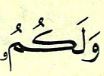 وَلَكُمُۥ